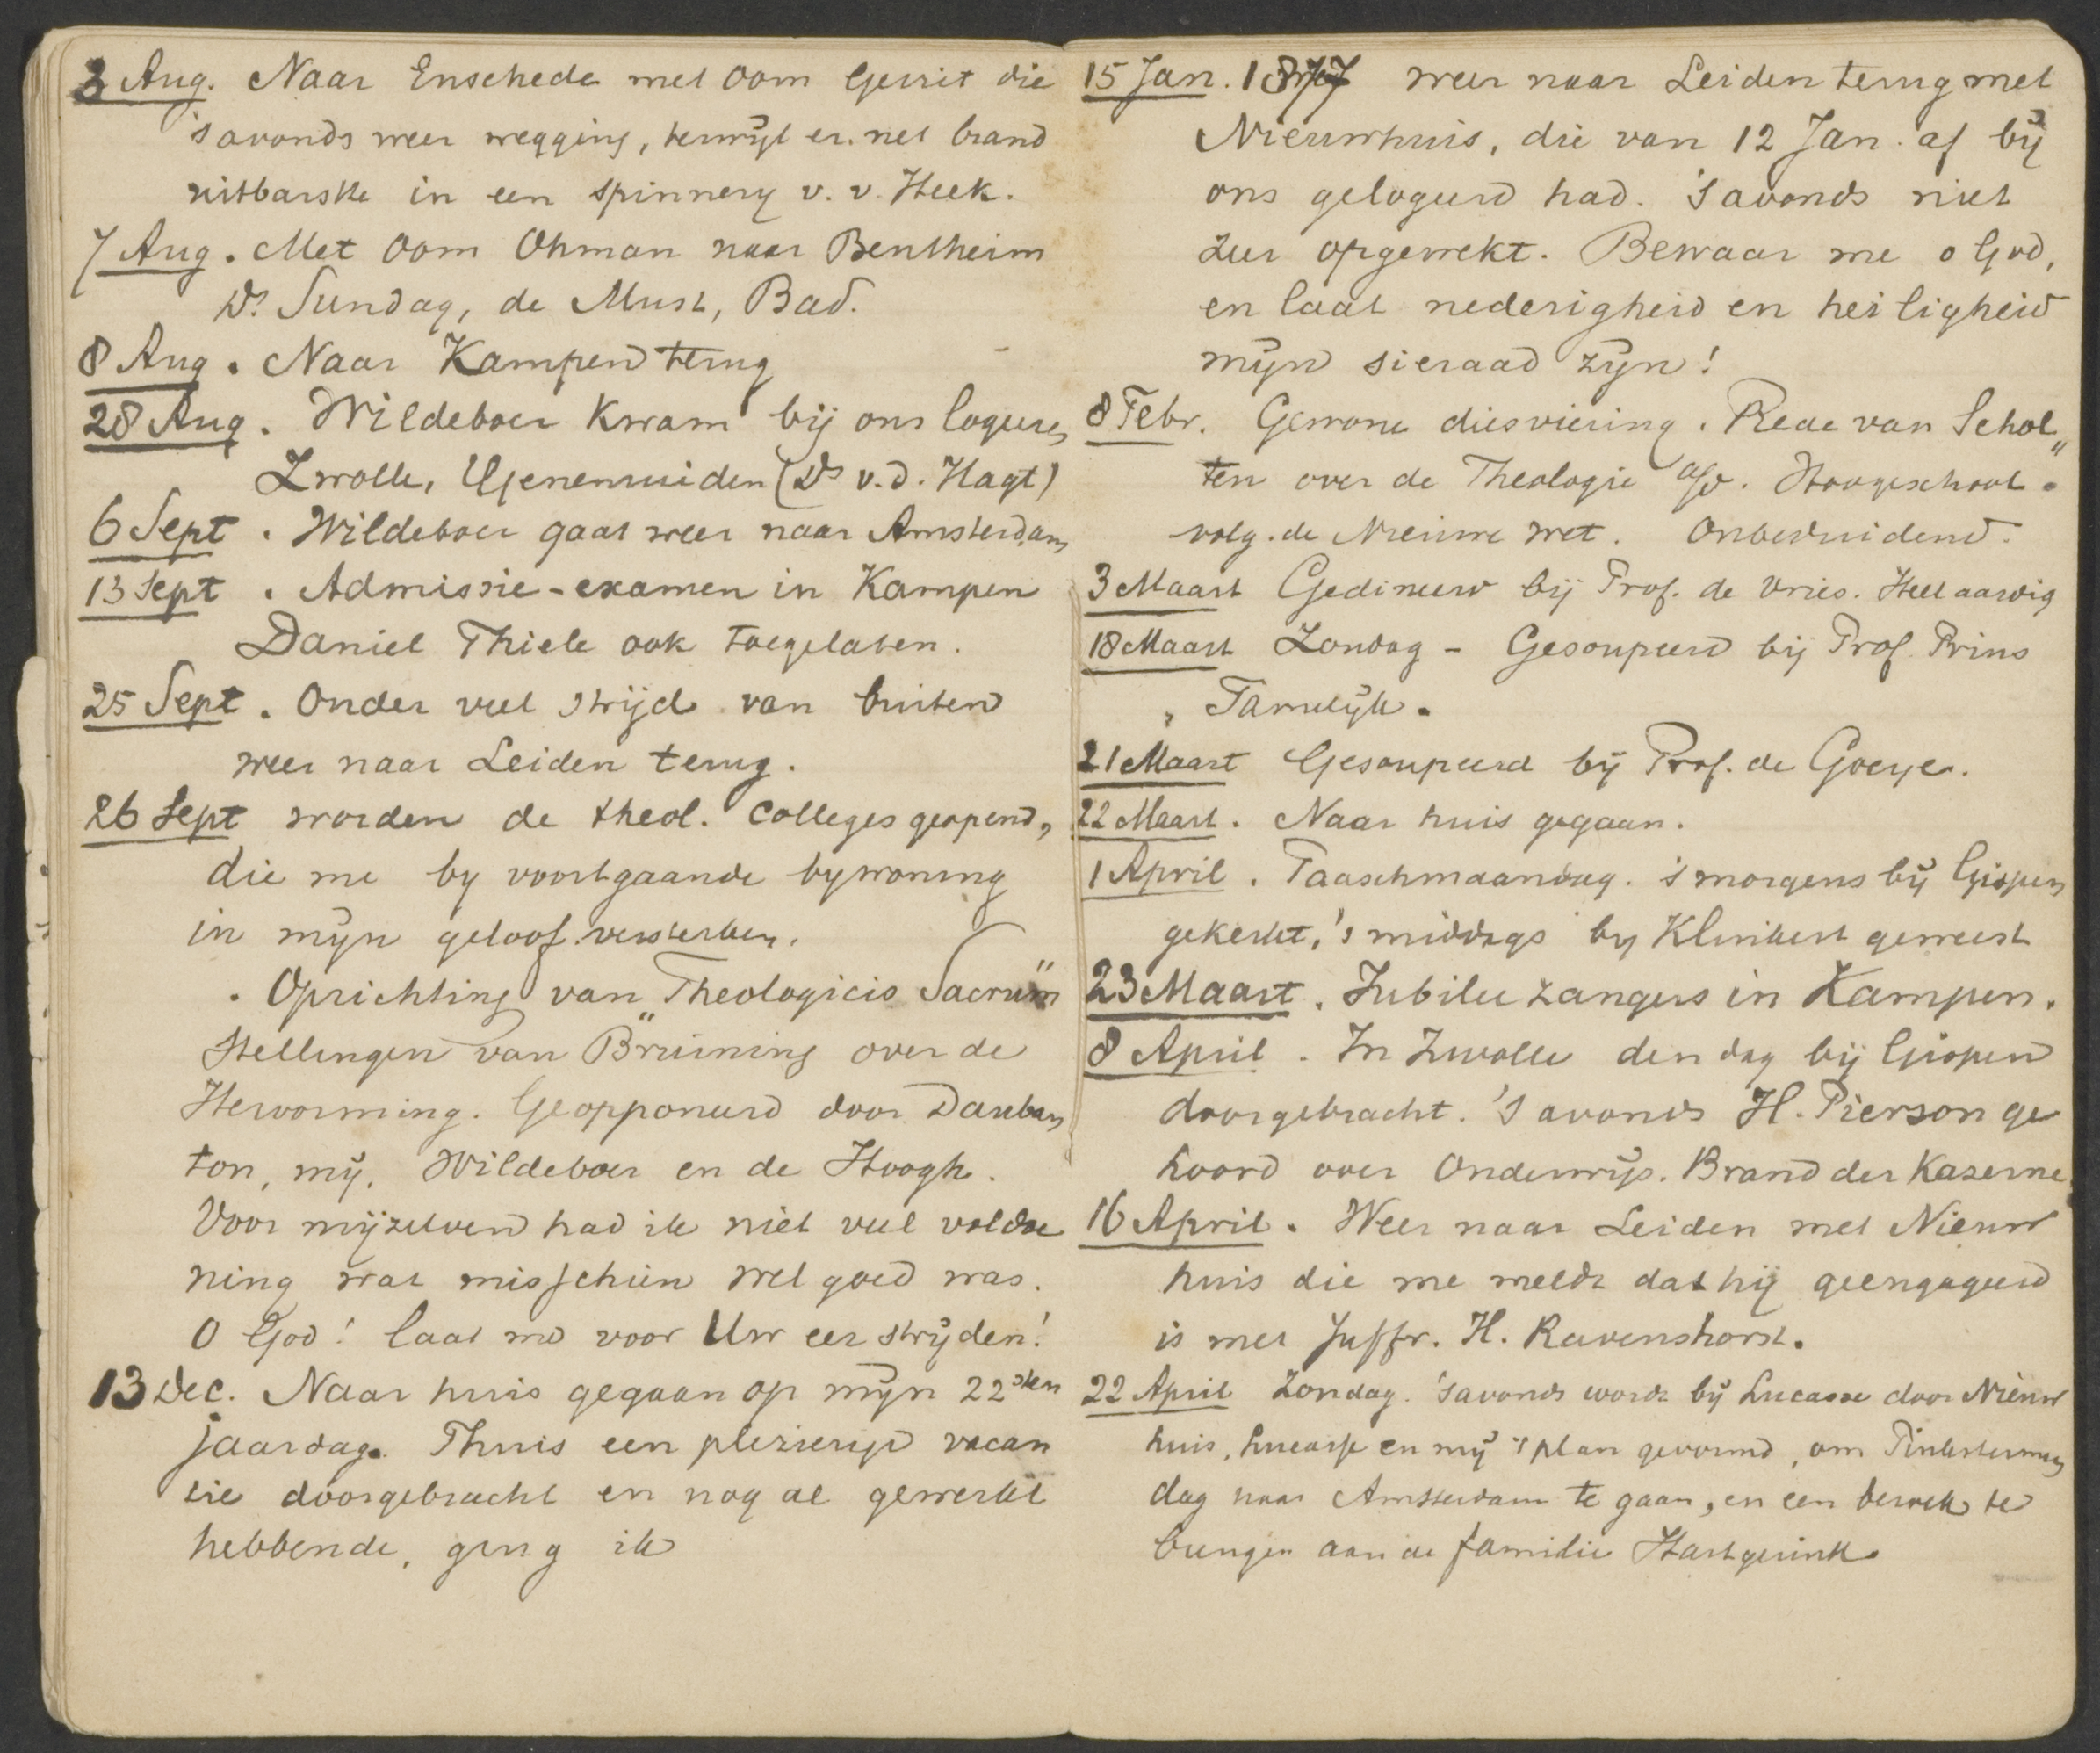 3 Aug. Naar Enschede met Oom Gerrit die
's avonds weer wegging, terwijl er net brand
uitbarstte in een spinnery v. v. Heek.
7 Aug. Met Oom Ohman naar Bentheim
Ds. Sundag, de Must, Bad.
8 Aug. Naar Kampen terug
28 Aug. Wildeboer kwam bij ons logeren
Zwolle, Genemuiden (Ds v.d. Hagt)
6 Sept. Wildeboer gaat weer naar Amsterdam
13 Sept. Admissie-examen in Kampen
Daniel Thiele ook toegelaten.
25 Sept. Onder veel strijd van buiten
weer naar Leiden terug.
26 Sept worden de theol. colleges geopend,
die me by voortgaande bywoning
in mijn geloof versterken.
. Oprichting van "Theologicis Sacrum"
Stellingen van Bruining over de
Hervorming. Geopponeerd door Dauban
ton, mij, Wildeboer en de Hoogh.
Voor mijzelven had ik niet veel voldoe
ning wat misschien wel goed was.
O God! laat me voor Uw eer strijden!
13 Dec. Naar huis gegaan op mijn 22sten
jaardag. Thuis een plezierige vacan
tie doorgebracht en nog al gewerkt
hebbende, ging ik
15 Jan. 1877 weer naar Leiden terug met
Nieuwhuis, die van 12 Jan. af bij
ons gelogeerd had. 's avonds niet
zeer opgewekt. Bewaar me o God,
en laat nederigheid en heiligheid
mijn sieraad zijn!
8 Febr. Gewone diesviering. Rede van Schol„
ten over de Theologie a/d. Hoogeschool.
volg. de nieuwe wet. Onbeduidend.
3 Maart Gedineerd bij Prof. de Vries. Heel aardig
18 Maart Zondag - Gesoupeerd bij Prof. Prins
Tamelijk.
21 Maart Gesoupeerd bij Prof. de Goeye.
22 Maart. Naar huis gegaan.
1 April. Paaschmaandag. 's morgens bij Gispen
gekerkt, 's middags by Klinkert geweest
23 Maart. Jubilee zangers in Kampen.
8 April. In Zwolle den dag bij Gispen
doorgebracht. 's avonds H. Pierson ge
hoord over Onderwijs. Brand der Kazerne
16 April. Weer naar Leiden met Nieuw
huis die me meldt dat hij geengageerd
is met Juffr. H. Ravenshorst.
22 April Zondag. 's avonds wordt bij Lucasse door Nieuw
huis, Lucasse en mij 't plan gevormd, om Pinkstermaan
dag naar Amsterdam te gaan, en een bezoek te
brengen aan de familie Hartgerink.